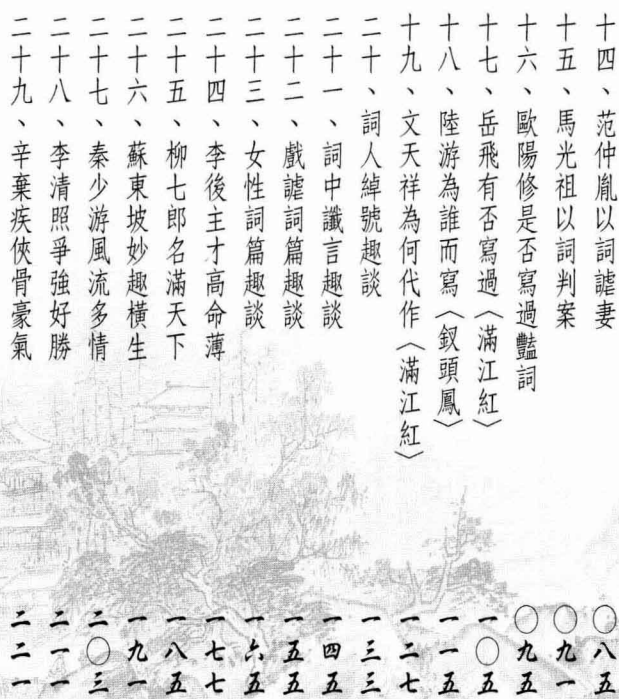 十四、范仲胤以詞謔妻 ○八五
十五、馬光祖以詞判案 ○九一
十六、歐陽修是否寫過豔詞 ○九五
十七、岳飛有否寫過〈滿江紅〉 一○五
十八、陸游為誰而寫〈釵頭鳳〉 一一五
十九、文天祥為何代作〈滿江紅〉 一二七
二十、詞人綽號趣談 一三三
二十一、詞中讖言趣談 一四五
二十二、戲謔詞篇趣談 一五五
二十三、女性詞篇趣談 一六五
二十四、李後主才高命薄 一七七
二十五、柳七郎名滿天下 一八五
二十六、蘇東坡妙趣橫生 一九一
二十七、秦少游風流多情 二○三
二十八、李清照爭強好勝 二一一
二十九、辛棄疾俠骨豪氣 二二一